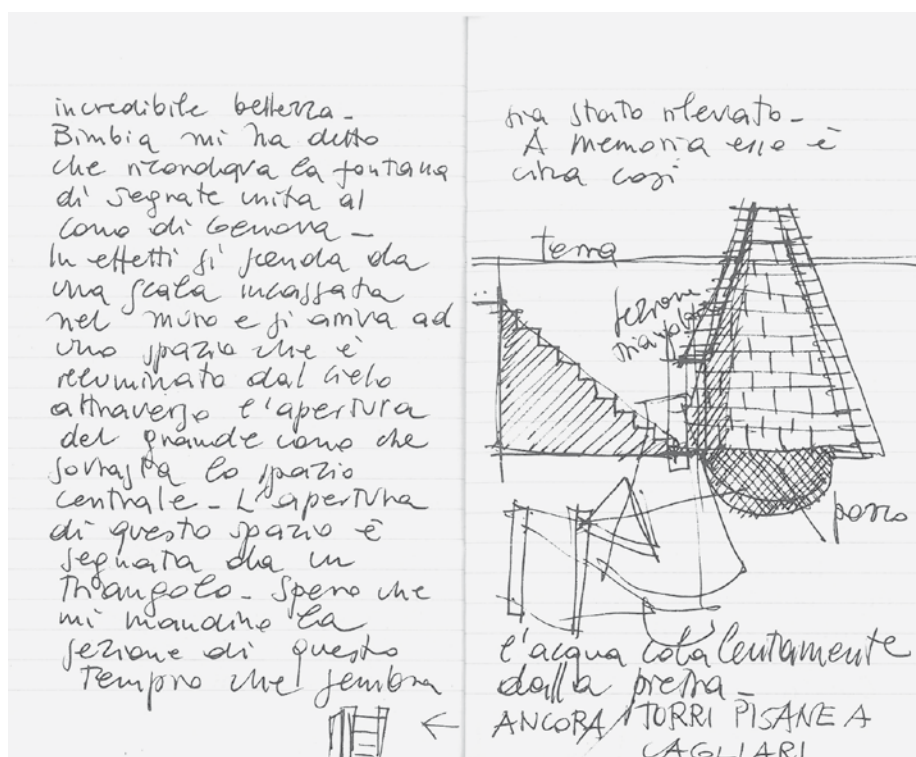 incredibile bellezza_
Bimbia mi ha detto
che ricordava la fontana
di segrate unita al
cono di Genova_
In effetti si scende da
una scala incassata
nel muro e si arriva ad
uno spazio che è
illuminato dal cielo
attraverso l'apertura
del grande cono che
sovrasta lo spazio
centrale_ L'apertura
di questo spazio è
segnata da un
triangolo_ Spero che
mi mandino la
sezione di questo
Tempio che sembra
sia stato rilevato_
A memoria esso è
circa così
terra
sezione
triangolo
pozzo
l'acqua cola lentamente
dalla pietra_
ANCORA / TORRI PISANE A
CAGLIARI